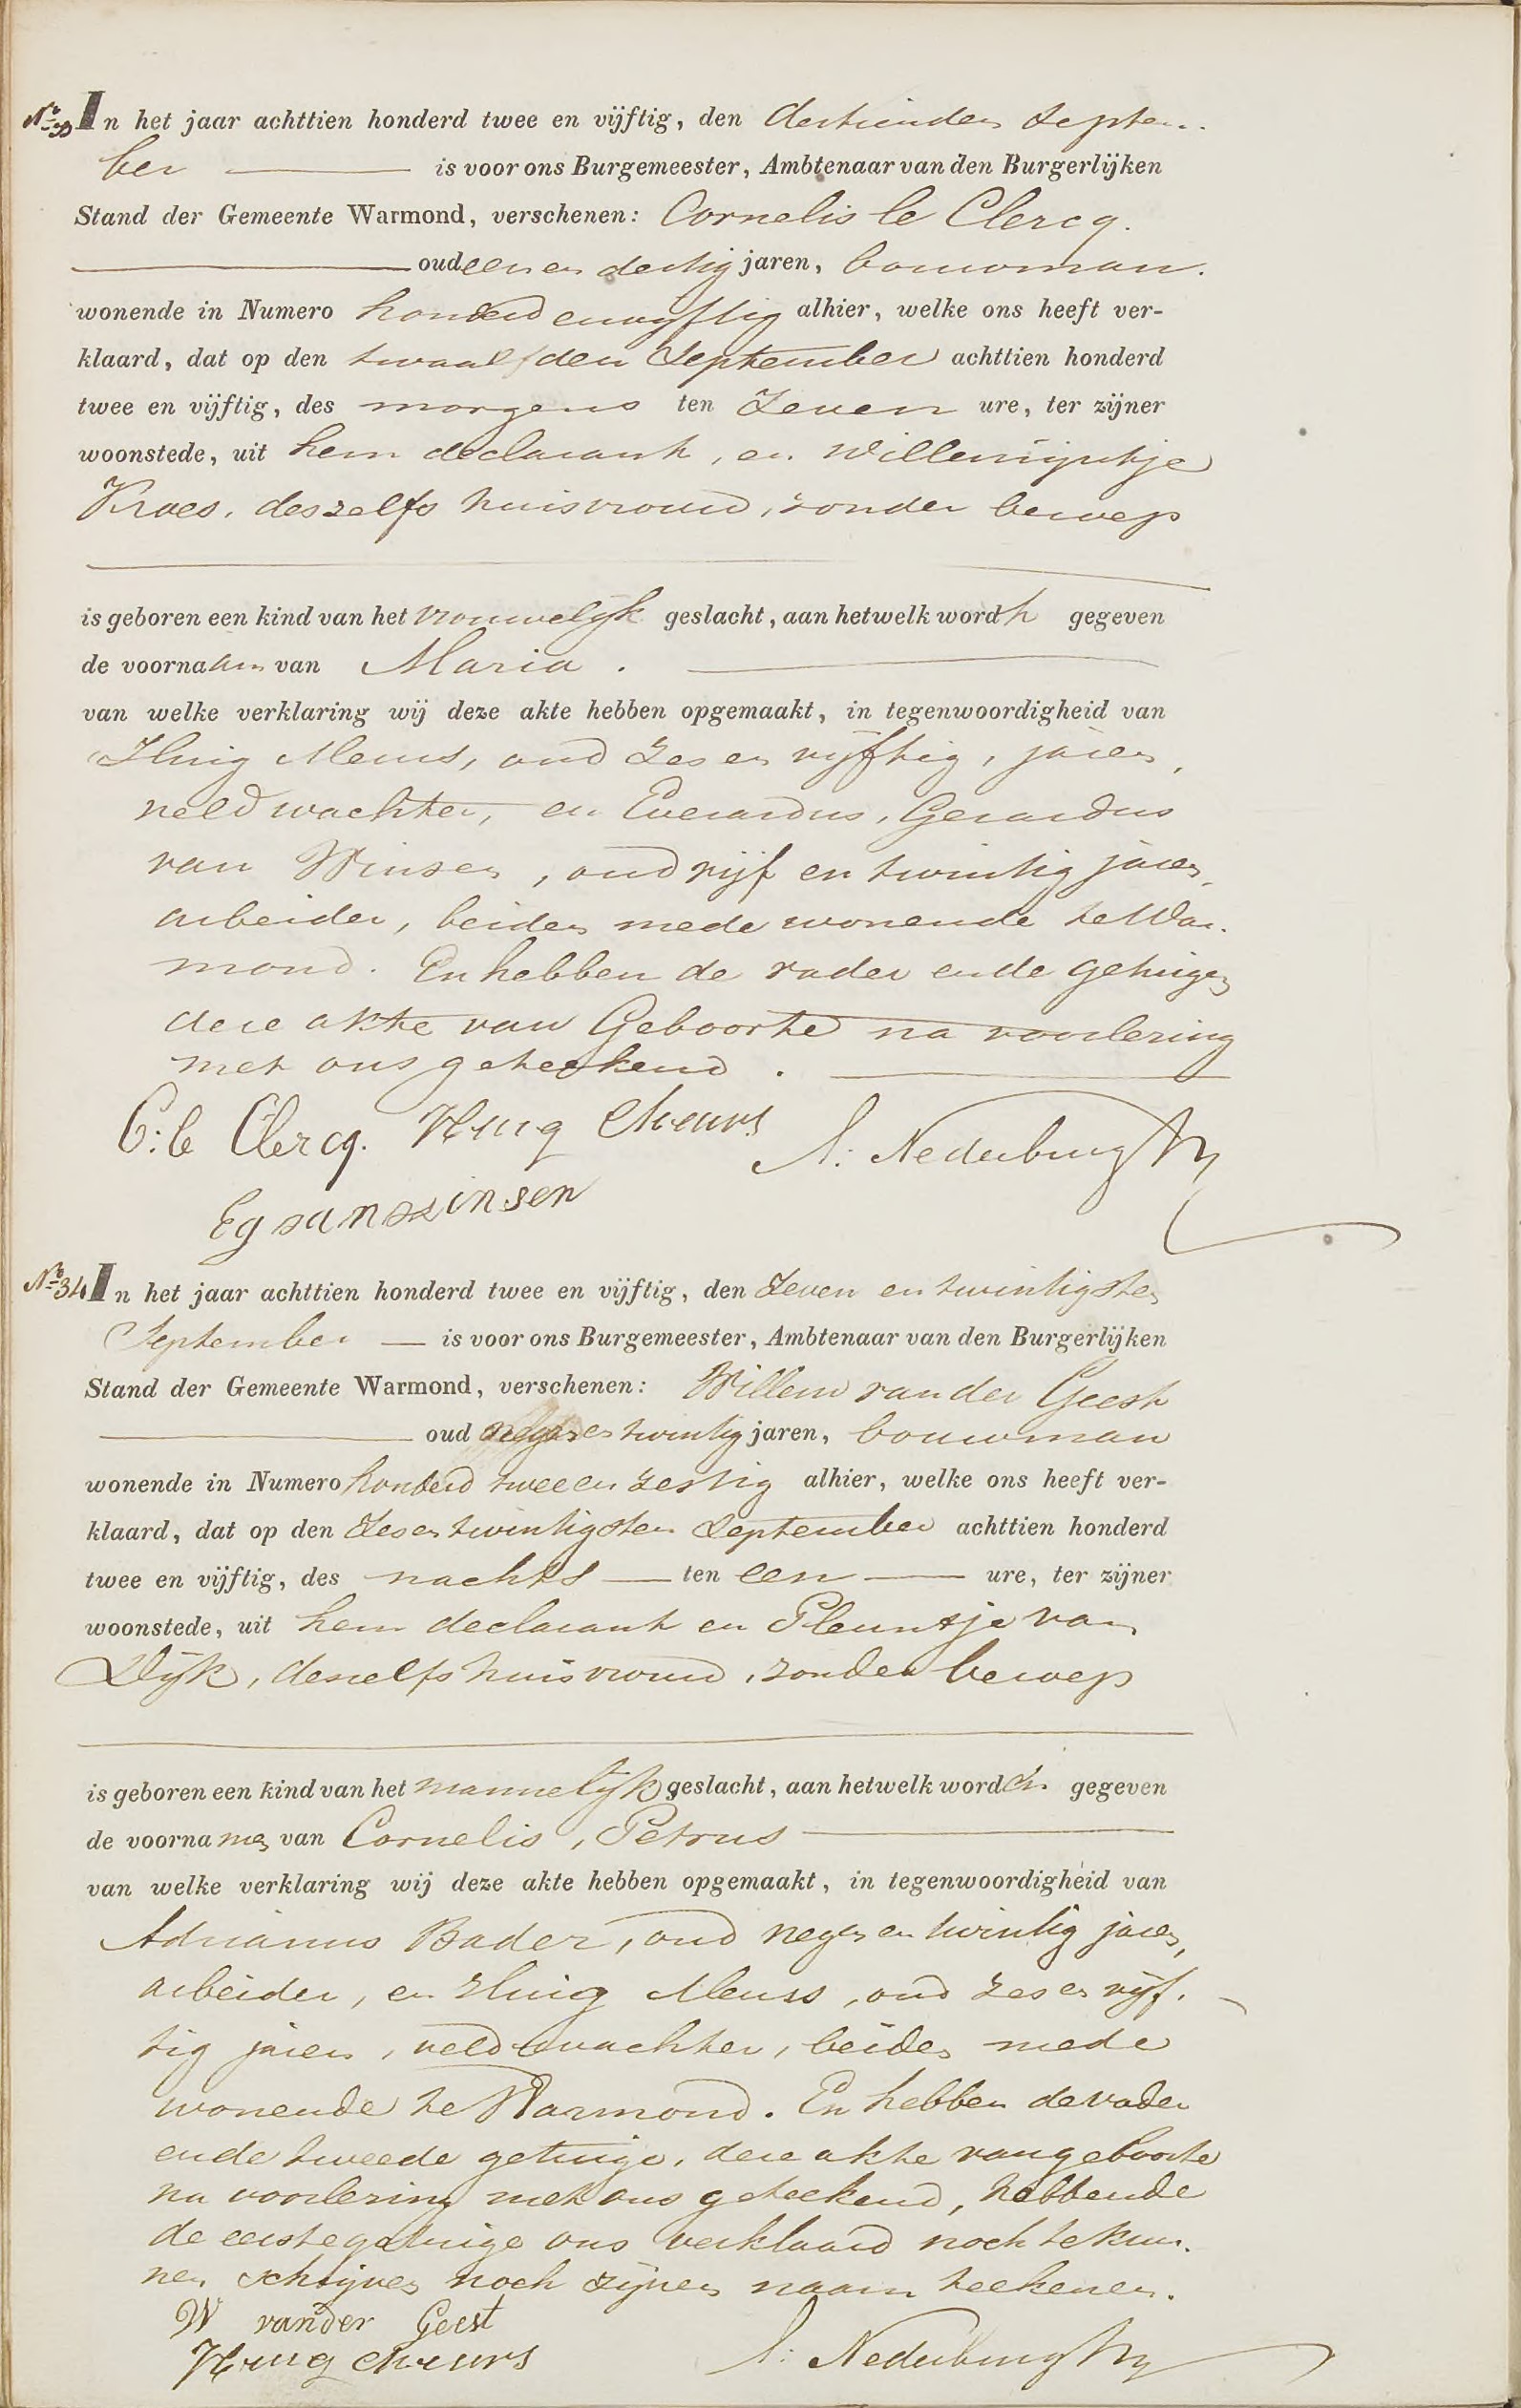 No 33 In het jaar achttien honderd twee en vijftig, den dertienden Septem-
ber is voor ons Burgemeester, Ambtenaar van den Burgerlijken
Stand der Gemeente Warmond, verschenen: Cornelis le Clercq.
oud een en dertig jaren, bouwman.
wonende in Numero honderd en vijftig alhier, welke ons heeft ver-
klaard, dat op den twaalfden September achttien honderd
twee en vijftig, des morgens ten Zeven ure, ter zijner
woonstede, uit hem declarant, en Willemijntje
Kroes, deszelfs huisvrouw, zonder beroep
is geboren een kind van het vrouwelijk geslacht, aan hetwelk wordt gegeven
de voornaam van Maria.
van welke verklaring wij deze akte hebben opgemaakt, in tegenwoordigheid van
Huig Meurs, oud Zes en vijftig, jaren,
veldwachter, en Everardus, Gerardus
van Winsen, oud vijf en twintig jaren,
arbeider, beiden mede wonende te War-
mond. En hebben de vader en de getuigen
deze akte van Geboorte na voorlezing
met ons geteekend.
C: le Clercq. Huig Meurs A: Nederburgh
EG van winsen
No 34 In het jaar achttien honderd twee en vijftig, den Zeven en twintigsten
September is voor ons Burgemeester, Ambtenaar van den Burgerlijken
Stand der Gemeente Warmond, verschenen: Willem van der Geest
oud negen en twintig jaren, bouwman
wonende in Numero honderd twee en zestig alhier, welke ons heeft ver-
klaard, dat op den Zes en twintigsten September achttien honderd
twee en vijftig, des nachts ten een ure, ter zijner
woonstede, uit hem declarant en Pleuntje van
Dijk, deszelfs huisvrouw, zonder beroep
is geboren een kind van het mannelijk geslacht, aan hetwelk worden gegeven
de voornamen van Cornelis, Petrus
van welke verklaring wij deze akte hebben opgemaakt, in tegenwoordigheid van
Adrianus Bader, oud negen en twintig jaren,
arbeider, en Huig Meurs, oud zes en vijf-
tig jaren, veldwachter, beiden mede
wonende te Warmond. En hebben de vader
en de tweede getuige, deze akte van geboorte
na voorlezing met ons geteekend, hebbende
de eerste getuige ons verklaard noch te kun-
nen schrijven noch zijnen naam teekenen.
W van der Geest
Huig Meurs A: Nederburgh